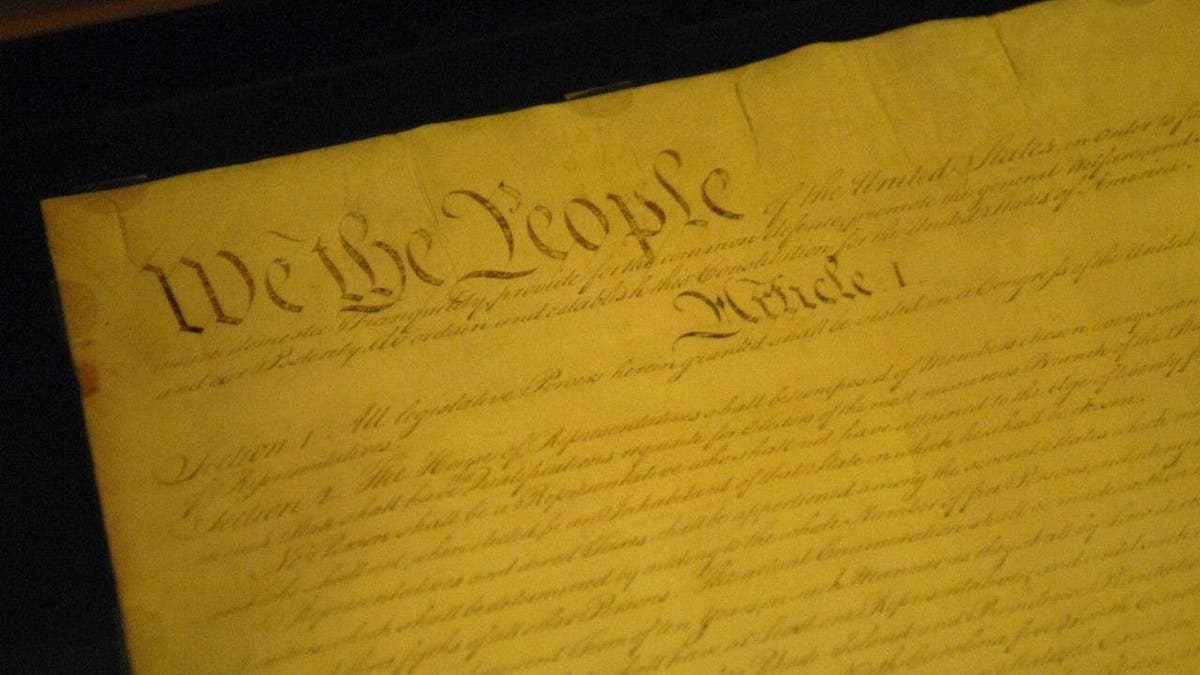 We the People of the United States, in Order to
insure domestic Tranquility, provide for the common defence, promote the general Welfare, and
and our Posterity, do ordain and establish this Constitution for the United States of America.
Article. I.
Section. 1. All legislative Powers herein granted shall be vested in a Congress of the United
of Representatives.
Section. 2. The House of Representatives shall be composed of Members chosen every
in each State shall have the Qualifications requisite for Electors of the most numerous Branch of the
No Person shall be a Representative who shall not have attained to the Age of twenty
and who shall not, when elected, be an Inhabitant of that State in which he shall be chosen.
Representatives and direct Taxes shall be apportioned among the several States which
which shall be determined by adding to the whole Number of free Persons, including
three fifths of all other Persons. The actual Enumeration shall be made within
of ten Years, in such Manner as they shall by Law
shall have at Least one Representative; and until such
Rhode Island and Providence Plantations